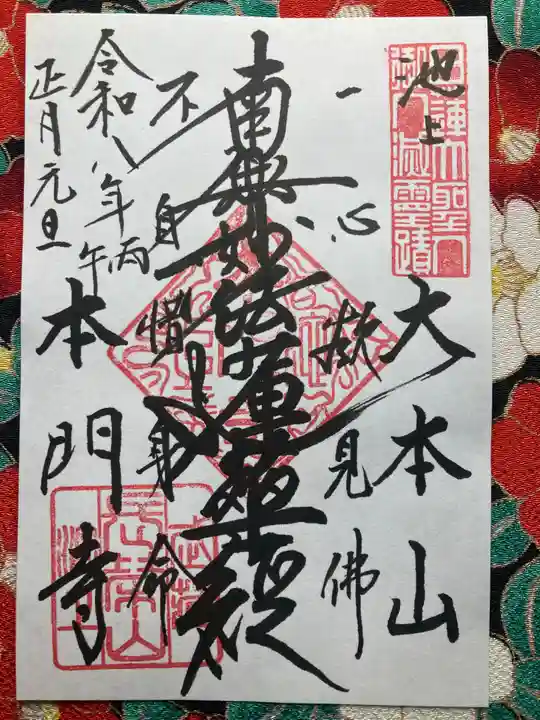 池上
日蓮大聖人
御入滅霊蹟
大本山
一心欲見佛
南無妙法蓮華経
不自惜身命
本門寺
令和八年丙午
正月元旦